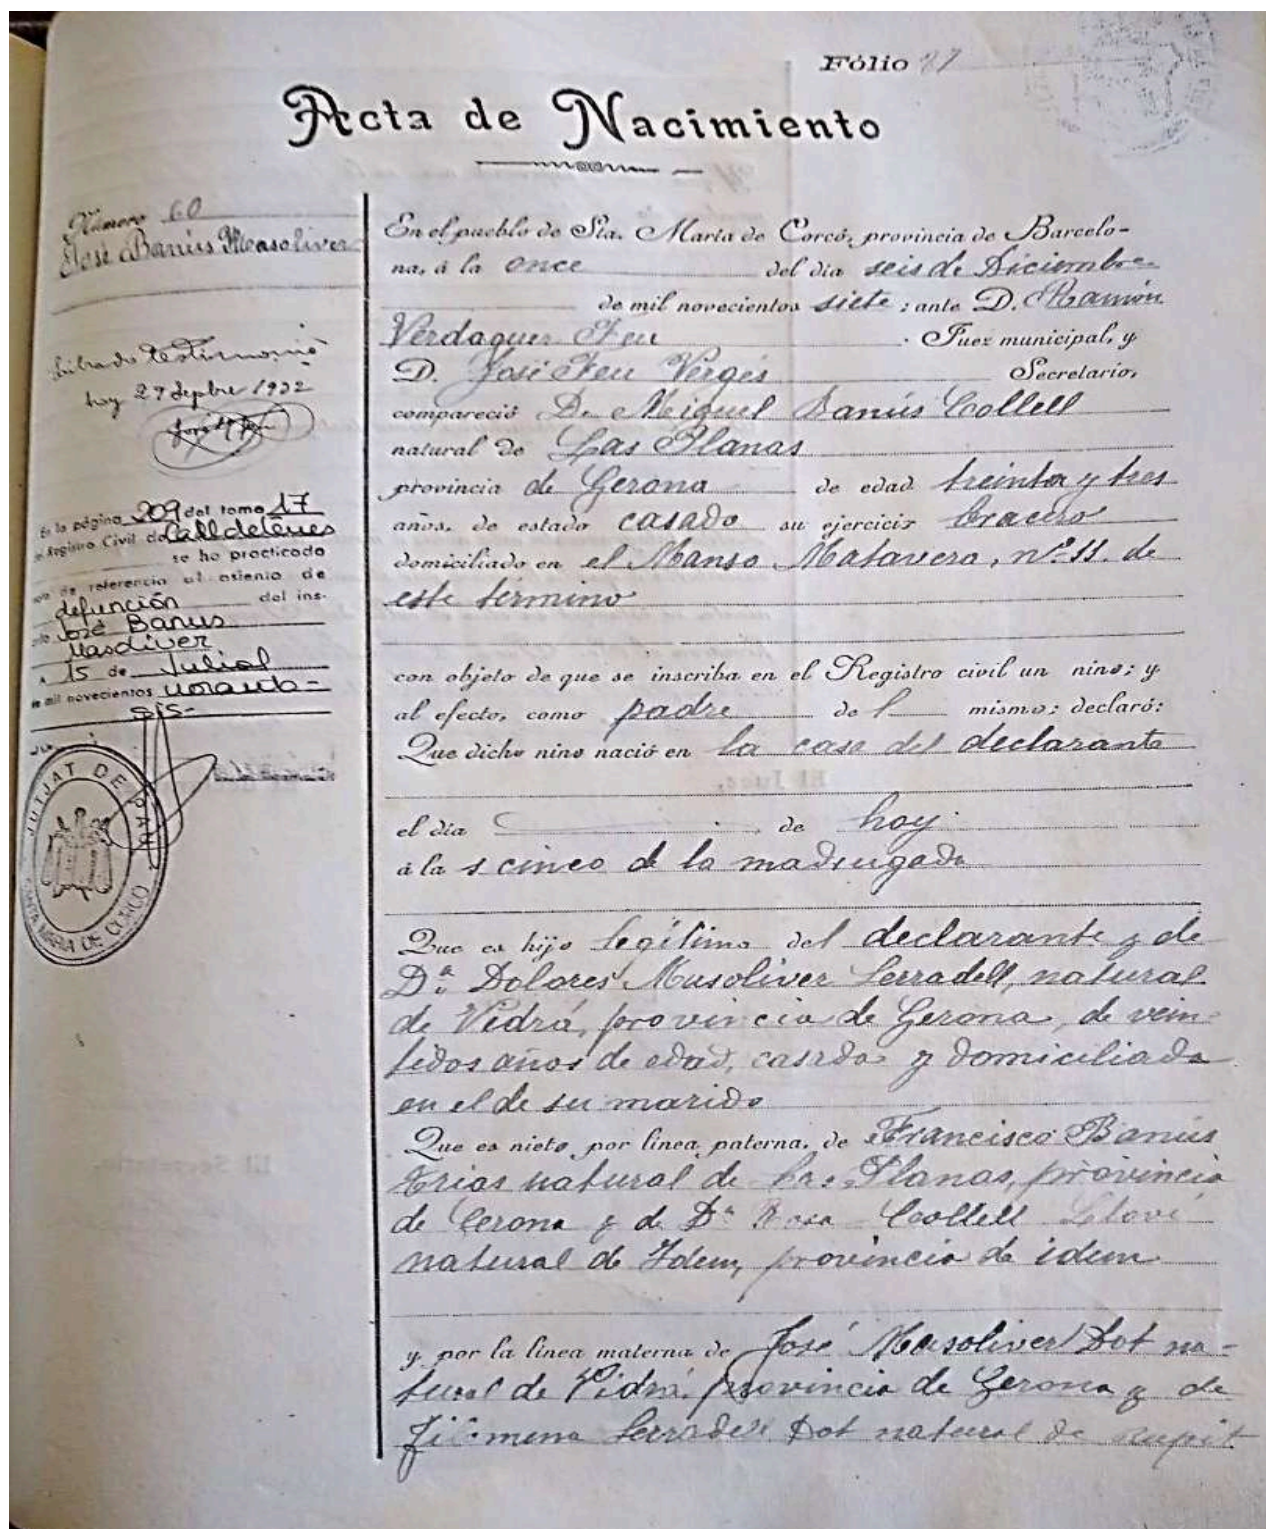 Fólio
Acta de Nacimiento
Número 60
José Banús Masoliver
Librado testimonio
hoy 27 Sepbre 1932
En la página 209 del tomo 17
Registro Civil de Calldetenes
se ha practicado
de referencia al asiento de
defunción del ins-
José Banus
Masoliver
15 de Juliol
mil novecientos
JUTJAT DE PAU
SANTA MARIA DE CORCÓ
En el pueblo de Sta. María de Corcó, provincia de Barcelo-
na, á la once del día seis de Diciembre
de mil novecientos siete; ante D. Ramón
Verdaguer Feu Juez municipal, y
D. José Feu Vergés Secretario,
compareció D. Miguel Banús Collell
natural de Las Planas
provincia de Gerona de edad treinta y tres
años, de estado casado su ejercicio bracero
domiciliado en el Manso Matavera, nº 11. de
este término
con objeto de que se inscriba en el Registro civil un nino; y
al efecto, como padre de l mismo; declaró:
Que dicho nino nació en la casa del declarante
el día de hoy
á la s cinco de la madrugada
Que es hijo legítimo del declarante y de
Dª Dolores Masoliver Serradell, natural
de Vidrá, provincia de Gerona, de vein-
tidos años de edad, casada y domiciliada
en el de su marido
Que es nieto por línea paterna, de Francisco Banús
natural de Las Planas, provincia
de Gerona y de Dª Rosa Collell
natural de Idem, provincia de idem
y por la línea materna de José Masoliver Dot na-
tural de Vidrá, provincia de Gerona y de
Filomena Serradell Dot natural de Rupit